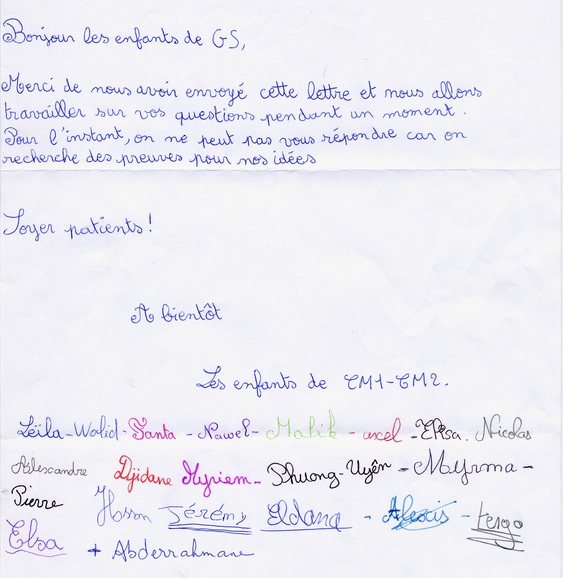 Bonjour les enfants de GS,
Merci de nous avoir envoyé cette lettre et nous allons
travailler sur vos questions pendant un moment.
Pour l'instant, on ne peut pas vous répondre car on
recherche des preuves pour nos idées
Soyer patients!
A bientôt
Les enfants de CM1-CM2.
Leïla-Walid-Santa-Nawel-Malik-axel-Elisa. Nicolas
Alexcandre Djidane Myriem-Phuong-Uyên-Myrma-
Pierre Hasson Jérémy Eldana - Alexis -
Elsa + Abderrahmane